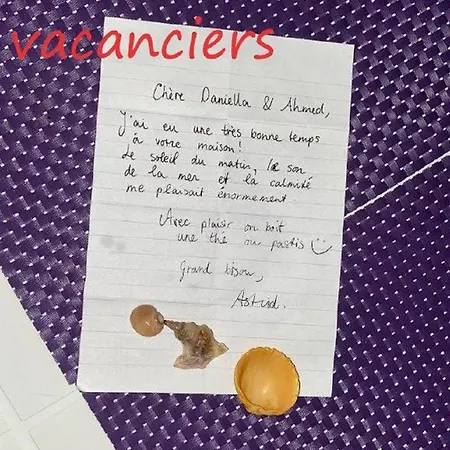 vacanciers
Chère Daniella & Ahmed,
J'ai eu une très bonne temps
à votre maison!
Le soleil du matin, le son
de la mer et la calmité
me plaisait énormement
Avec plaisir on boit
une thé ou pastis
Grand bisou,
Astrid.